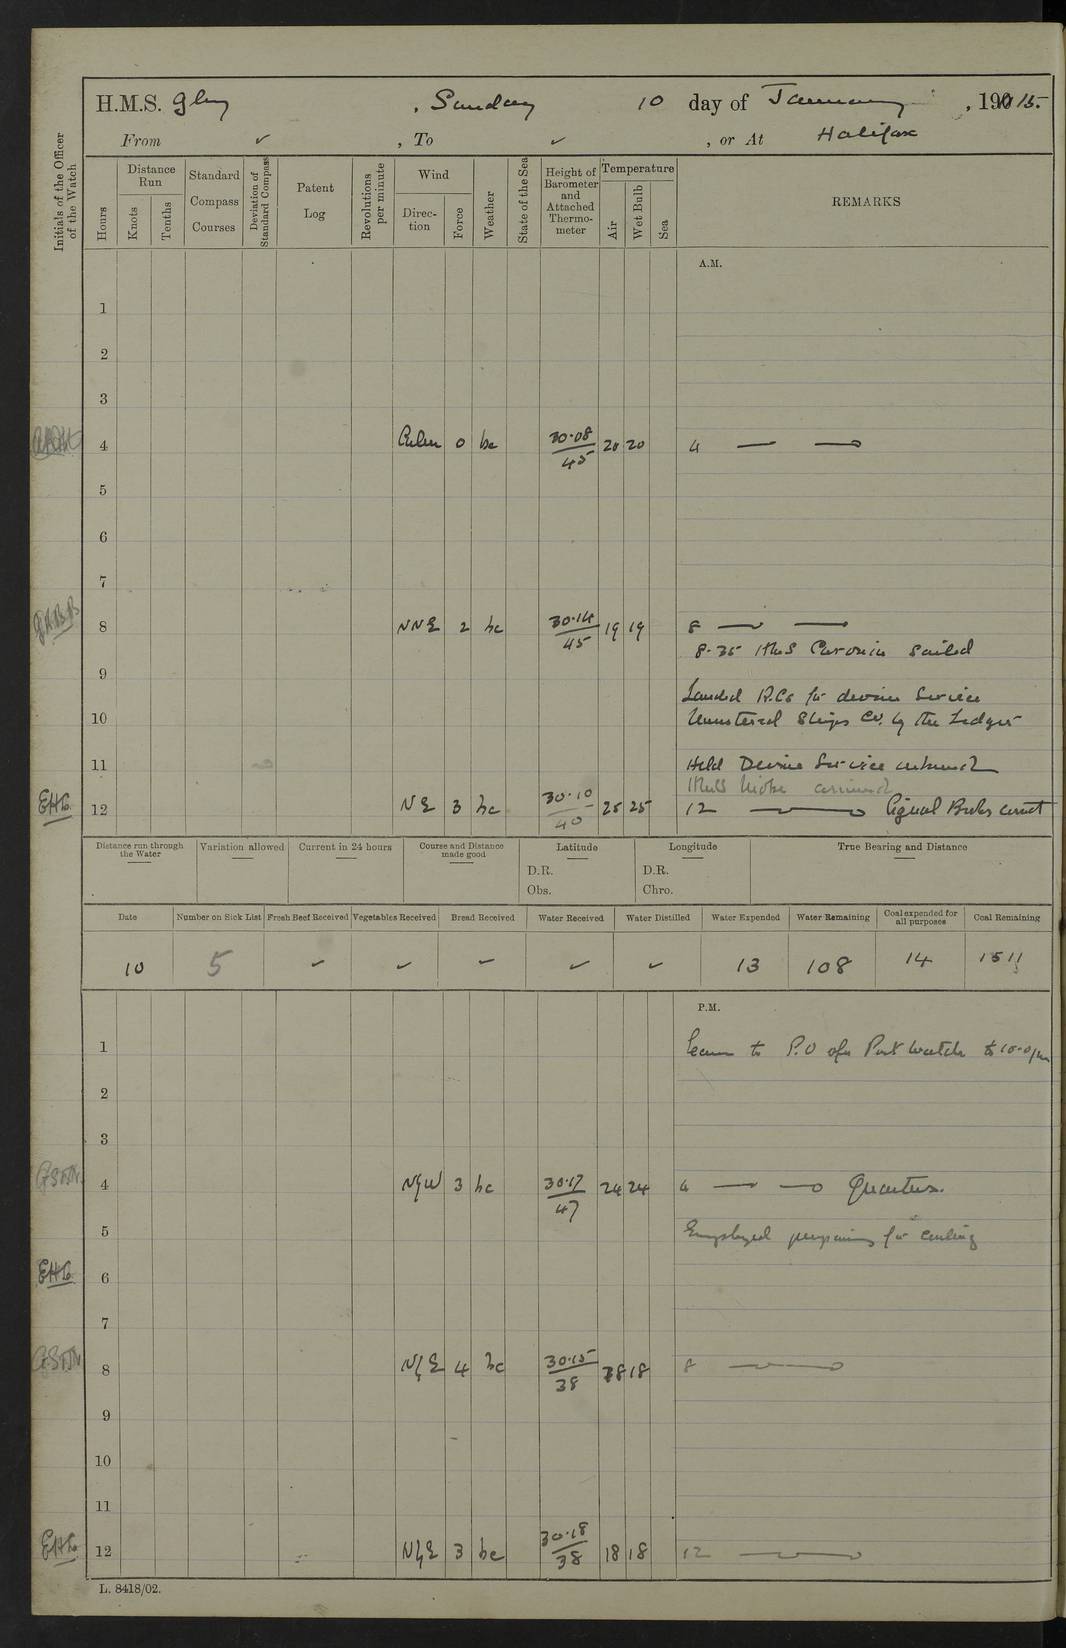 H.M.S. Glory, Sunday 10 day of January, 1915.
From ✓, To ✓, or At Halifax
Initials of the Officer of the Watch
Hours
Distance Run
Knots
Tenths
Standard Compass Courses
Deviation of Standard Compass
Patent Log
Revolutions per minute
Wind
Direction
Force
Weather
State of the Sea
Height of Barometer and Attached Thermometer
Temperature
Air
Wet Bulb
Sea
REMARKS
A.M.
1
2
3
4 Calm 0 bc 30·08/45 20 20 4
5
6
7
8 NNE 2 bc 30·14/45 19 19 8
8·35 HMS Caronia Sailed
9
Landed R.Cs for devine Service
10 Mustered Ships Co. by the Ledger
11 Held Devine Service
HMS Niobe arrived
EHG 12 NE 3 bc 30·10/40 25 25 12 Signal Books correct
Distance run through the Water
Variation allowed
Current in 24 hours
Course and Distance made good
Latitude
D.R.
Obs.
Longitude
D.R.
Chro.
True Bearing and Distance
Date Number on Sick List Fresh Beef Received Vegetables Received Bread Received Water Received Water Distilled Water Expended Water Remaining Coal expended for all purposes Coal Remaining
10 5 ✓ ✓ ✓ ✓ ✓ 13 108 14 1511
P.M.
1 Leave to P.O of Port Watch to 10·0 pm
2
3
4 N by W 3 bc 30·17/47 24 24 4 Quarters.
5 Employed preparing for coaling
EHG 6
7
8 N by E 4 bc 30·15/38 18 18 8
9
10
11
EHG 12 N by E 3 bc 30·18/38 18 18 12
L. 8418/02.